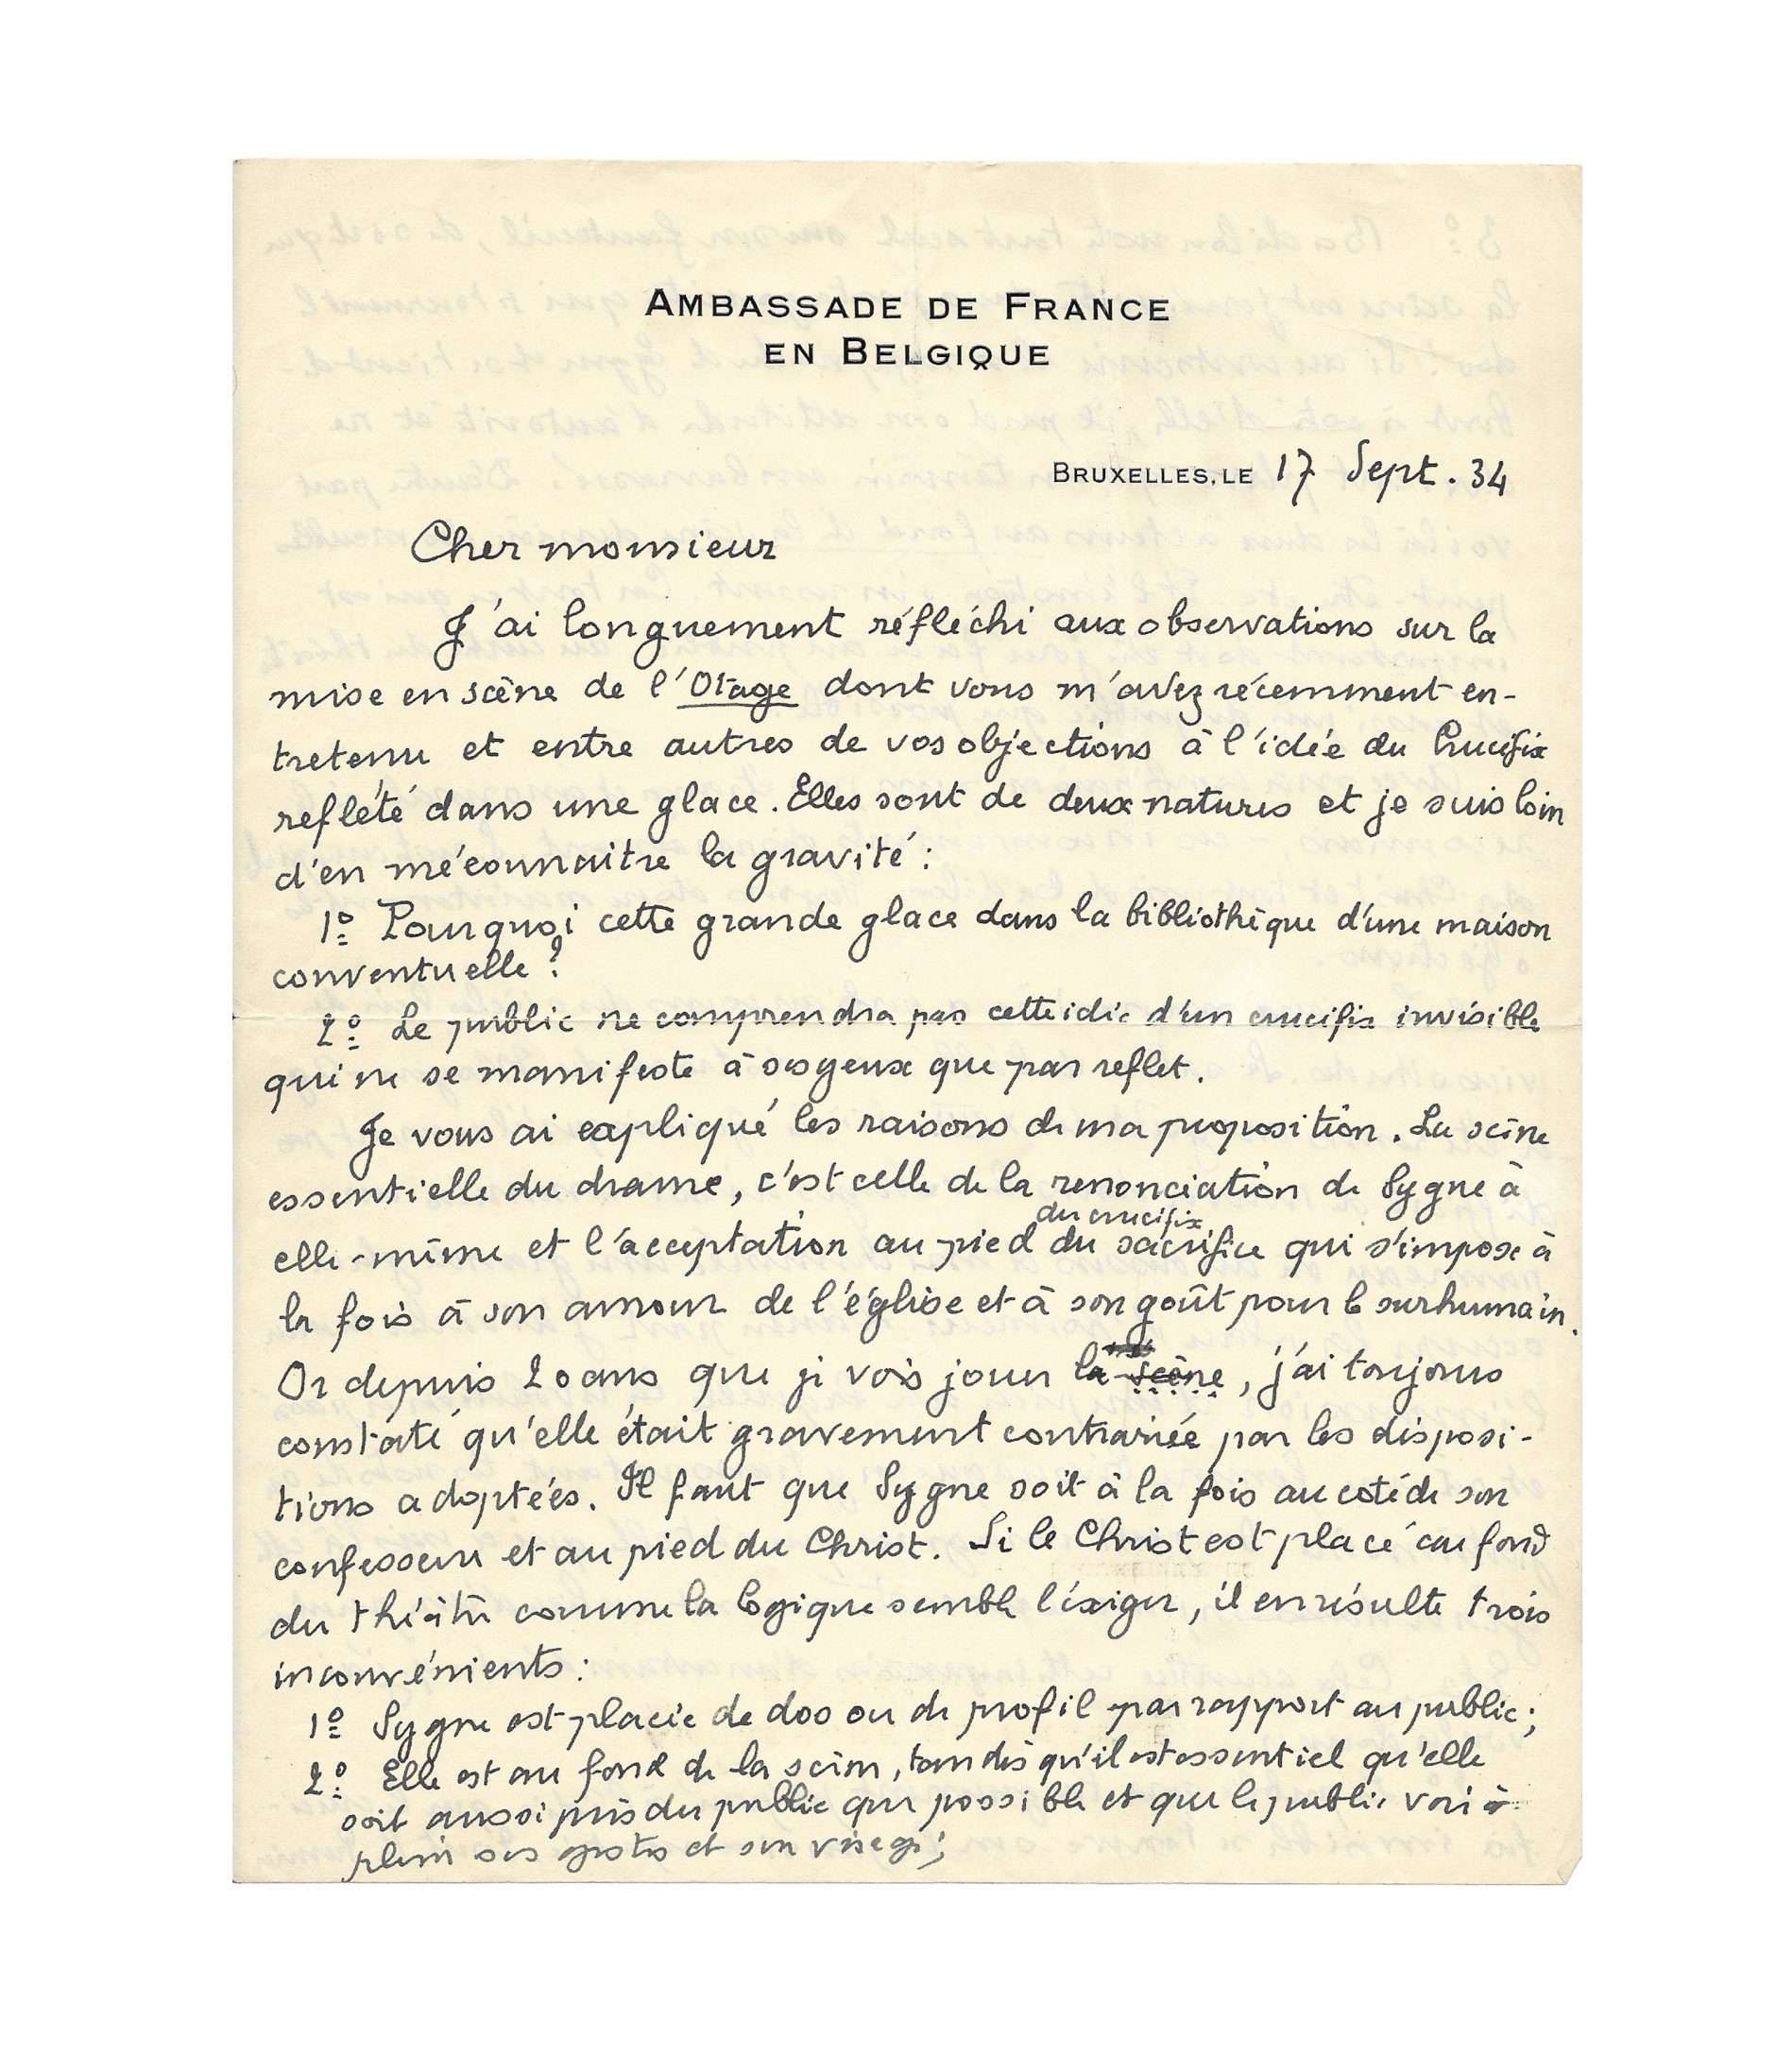 AMBASSADE DE FRANCE
EN BELGIQUE
BRUXELLES, LE 17 Sept. 34
Cher monsieur
J'ai longuement réfléchi aux observations sur la
mise en scène de l'Otage dont vous m'avez récemment en-
tretenu et entre autres de vos objections à l'idée du Crucifix
reflété dans une glace. Elles sont de deux natures et je suis loin
d'en méconnaitre la gravité :
1º Pourquoi cette grande glace dans la bibliothèque d'une maison
conventuelle ?
2º Le public ne comprendra pas cette idée d'un crucifix invisible
qui ne se manifeste à ses yeux que par reflet.
Je vous ai expliqué les raisons de ma proposition. La scène
essentielle du drame, c'est celle de la renonciation de Sygne à
du crucifix
elle-même et l'acceptation au pied du sacrifice qui s'impose à
la fois à son amour de l'église et à son goût pour le surhumain.
Or depuis 20 ans que je vois jouer la scène, j'ai toujours
constaté qu'elle était gravement contrariée par les disposi-
tions adoptées. Il faut que Sygne soit à la fois au coté de son
confesseur et au pied du Christ. Si le Christ est placé au fond
du théâtre comme la logique semble l'éxiger, il en résulte trois
inconvénients :
1º Sygne est placée de dos ou de profil par rapport au public ;
2º Elle est au fond de la scène, tandis qu'il est essentiel qu'elle
soit aussi près du public que possible et que le public voie à
plein ses gestes et son visage ;